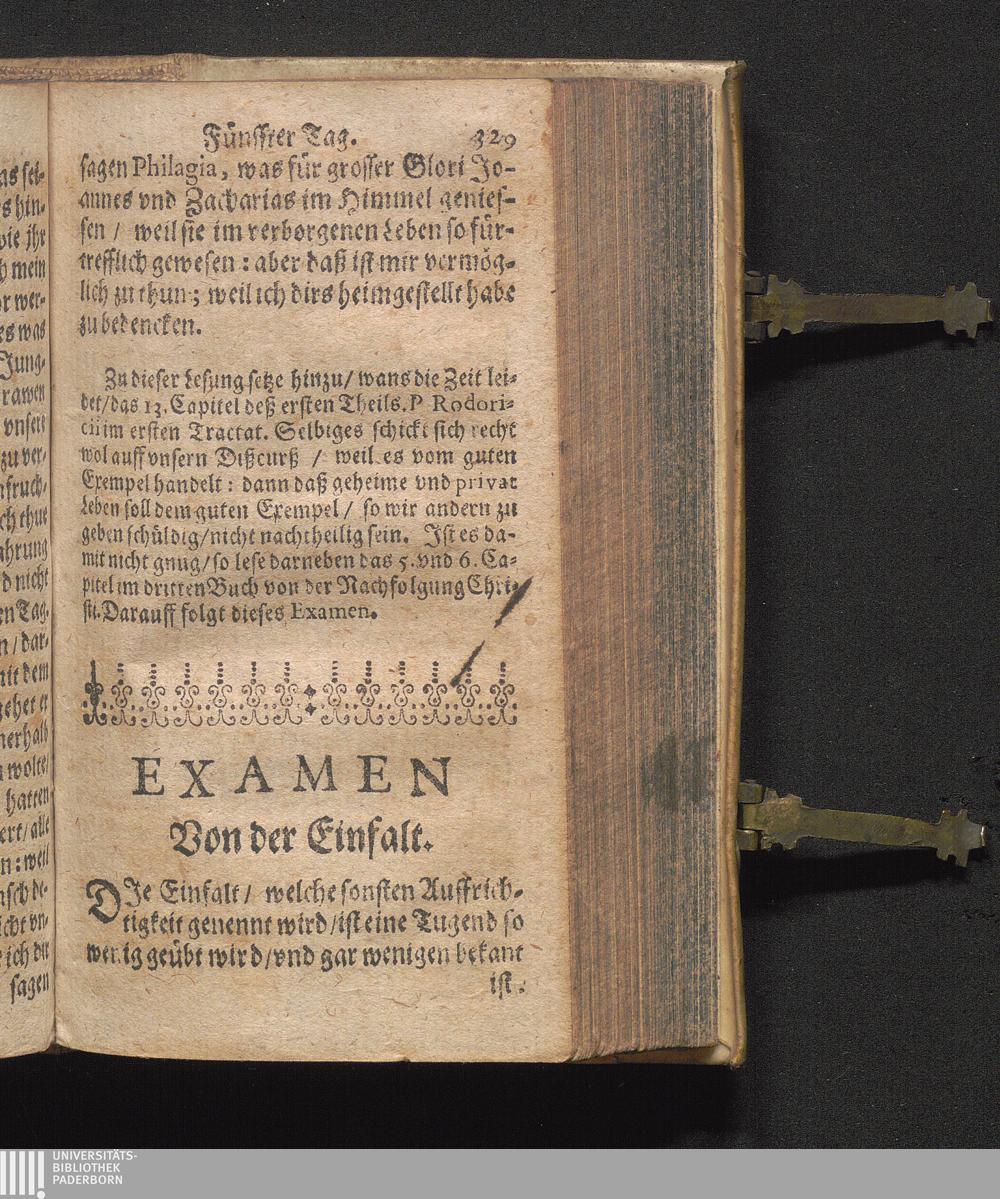 Fünffter Tag. 329
sagen Philagia, was für grosser Glori Jo-
annes vnd Zacharias im Himmel genies-
sen / weil sie im verborgenen Leben so für-
trefflich gewesen : aber daß ist mir vermög-
lich zu thun; weil ich dirs heimgestellt habe
zu bedencken.
Zu dieser Lesung setze hinzu/ wans die Zeit lei-
det/das 13. Capitel deß ersten Theils. P Rodori-
cii im ersten Tractat. Selbiges schickt sich recht
wol auff vnsern Dißcurß / weil es vom guten
Exempel handelt : dann daß geheime vnd privat
Leben soll dem guten Exempel / so wir andern zu
geben schüldig/nicht nachtheilig sein. Ist es da-
mit nicht gnug/so lese darneben das 5. vnd 6. Ca-
pitel im dritten Buch von der Nachfolgung Chri-
sti. Darauff folgt dieses Examen.
EXAMEN
Von der Einfalt.
DJe Einfalt/ welche sonsten Auffrich-
tigkeit genennt wird/ist eine Tugend so
wenig geübt wird/vnd gar wenigen bekant
ist.
as sei-
s hin-
wie ihr
h mein
or wer-
es was
Jung-
rawen
vnsere
zu ver-
nfruch-
ch thut
ahrung
d nicht
en Tag.
n / dar-
mit dem
gehet er
nerhalb
n wolte/
hatten
ert/ alle
n : weil
nsch de-
icht vn-
e ich dir
sagen
UNIVERSITÄTS-
BIBLIOTHEK
PADERBORN